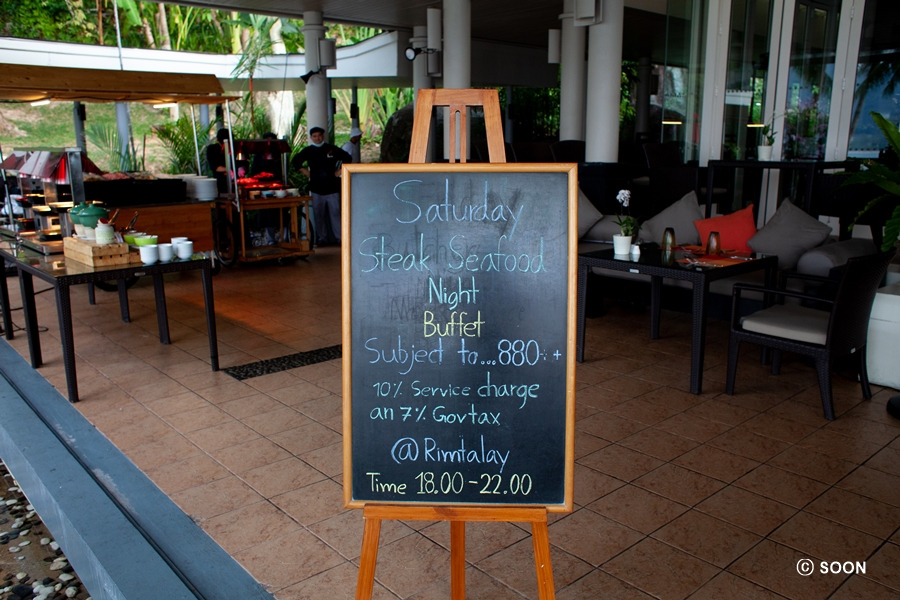 Saturday
Steak Seafood
Night
Buffet
Subject to...880++
10% Service charge
an 7% Gov tax
@Rimtalay
Time 18.00-22.00
© SOON